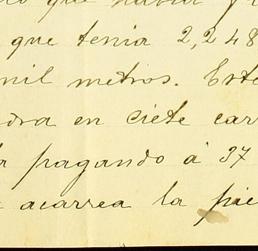 que habia
que tenia 2,248
mil metros. Este
dra en ciete carr
pagando á 37
acarrea la pie